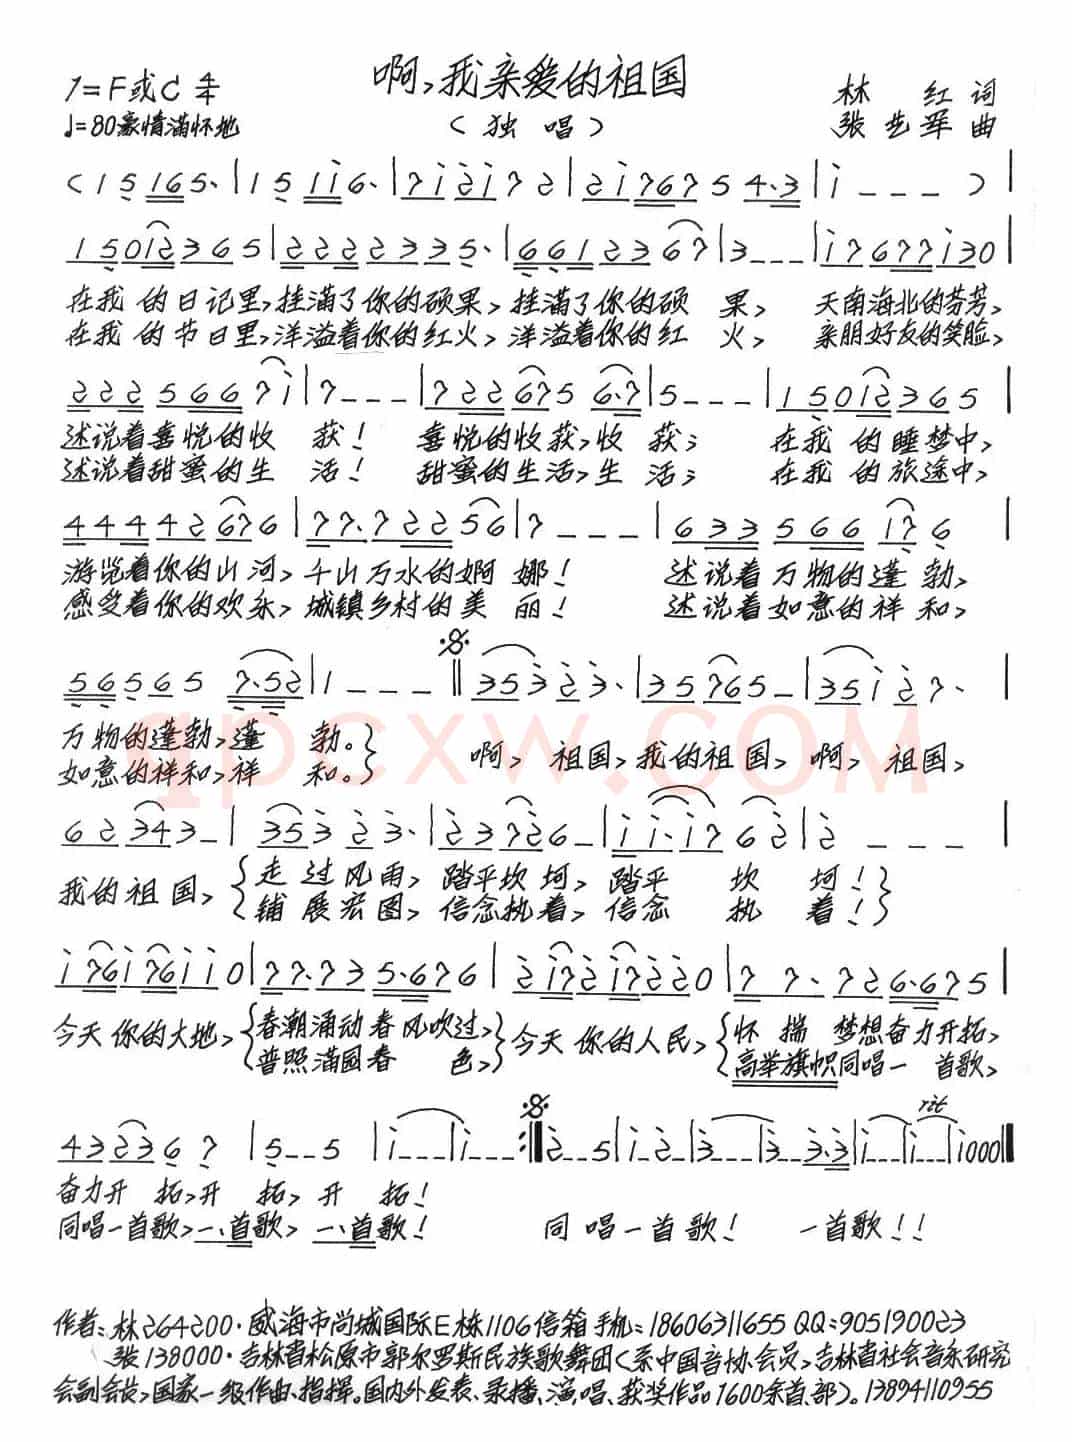 啊,我亲爱的祖国
1=F或C 4/4
林 红 词
♩=80豪情满怀地
(独 唱)
张艺军 曲
(1 5 165· | 1 5 11i6· | 7i2i72 | 2i76754·3 | i - - - )
15012365 | 2222335· | 66123 67 | 3 - - - | i7677i30
在我 的日记里,挂满了你的硕果,挂满了你的硕 果, 天南海北的芬芳,
在我 的节日里,洋溢着你的红火,洋溢着你的红 火, 亲朋好友的笑脸,
2225667i | 7 - - - | 722675 6·7 | 5 - - - | 15012365
述说着喜悦的收 获! 喜悦的收获,收 获; 在我 的睡梦中,
述说着甜蜜的生 活! 甜蜜的生活,生 活; 在我 的旅途中,
44442676 | 77·72256 | 7 - - - | 63356617 6
游览着你的山河,千山万水的婀 娜! 述说着万物的蓬 勃,
感受着你的欢乐,城镇乡村的美 丽! 述说着如意的祥 和,
56565 7·52 | 1 - - - || 35323· | 35765 - | 35i27·
万物的蓬勃,蓬 勃。}
如意的祥和,祥 和。}
啊, 祖国,我的祖国,啊, 祖国,
62343 - | 35323· | 23726 - | ii·i7 62 | 2 - - -
我的祖国,
{走过风雨,踏平坎坷,踏平 坎 坷!}
{铺展宏图,信念执着,信念 执 着!}
i76i76ii0 | 77·735·676 | 2i72i7220 | 77·726·675
今天你的大地,
{春潮涌动春风吹过,}
{普照满园春 色,}
今天你的人民,
{怀揣 梦想奋力开拓,
{高举旗帜同唱一 首歌,
rit
4323 6 7 | 5 - - 5 | i - - - | i - - - :|| 2 - - 5 | i - 2 - | 3 - - - | 3 - 3·3 | i - - - | i - - - | i000 ||
奋力开 拓,开 拓, 开 拓!
同唱一首歌,一、首歌, 一、首歌! 同 唱一首歌! 一首歌!!
作者:林264200·威海市尚城国际E栋1106信箱手机:18606311655 QQ:905190023
张138000·吉林省松原市郭尔罗斯民族歌舞团(系中国音协会员,吉林省社会音乐研究
会副会长,国家一级作曲、指挥。国内外发表、录播、演唱、获奖作品1600余首、部)。13894110955
qpcxw.COM